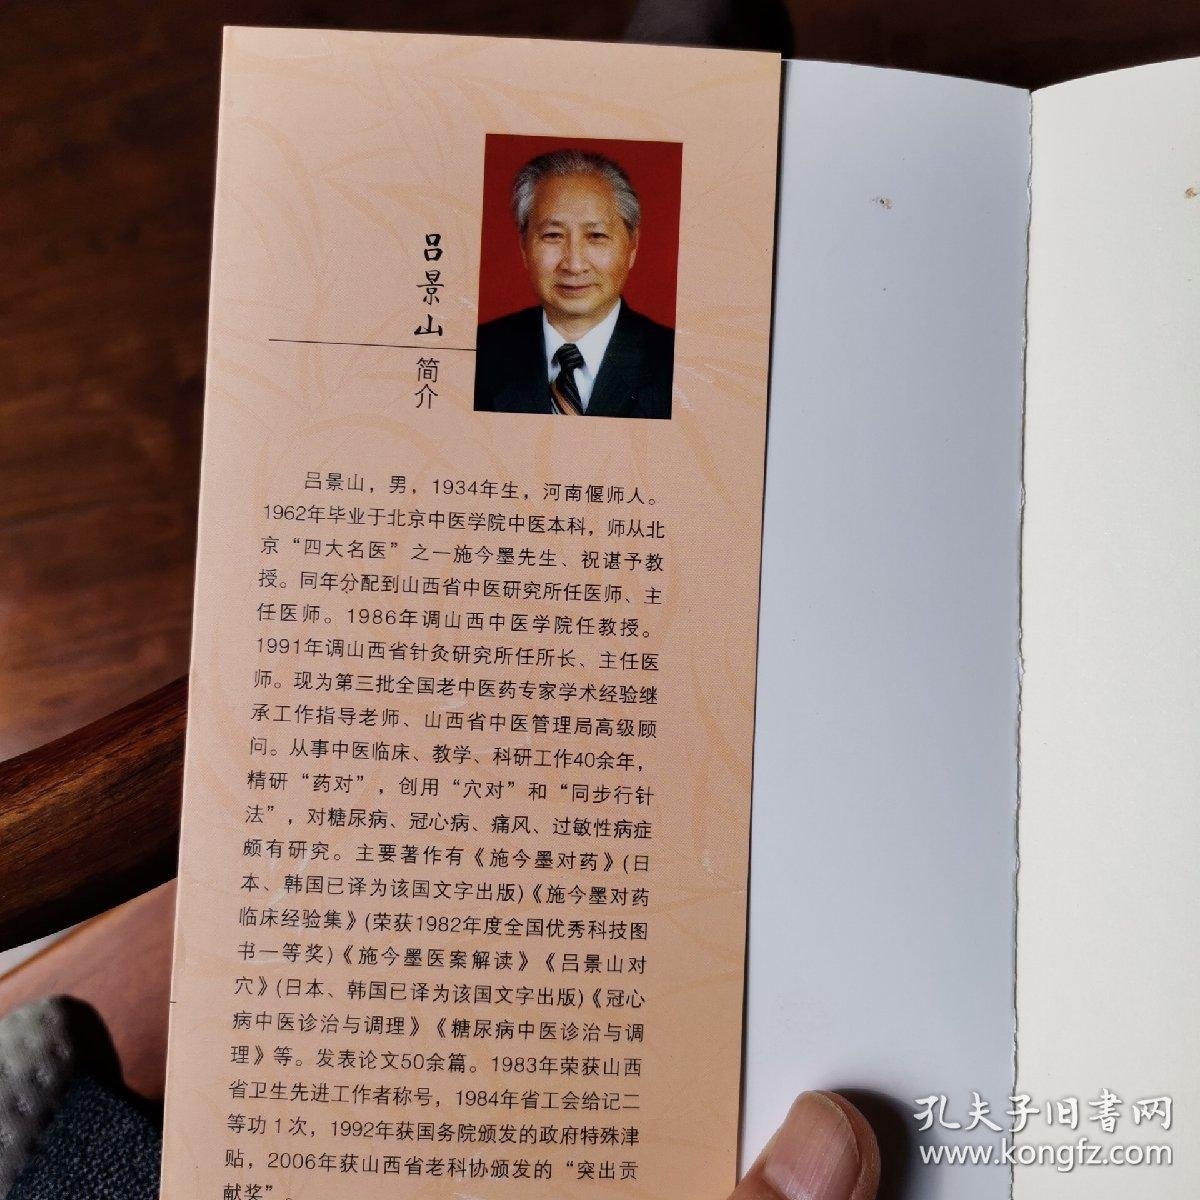 吕景山
简介
吕景山，男，1934年生，河南偃师人。
1962年毕业于北京中医学院中医本科，师从北
京“四大名医”之一施今墨先生、祝谌予教
授。同年分配到山西省中医研究所任医师、主
任医师。1986年调山西中医学院任教授。
1991年调山西省针灸研究所任所长、主任医
师。现为第三批全国老中医药专家学术经验继
承工作指导老师、山西省中医管理局高级顾
问。从事中医临床、教学、科研工作40余年，
精研“药对”，创用“穴对”和“同步行针
法”，对糖尿病、冠心病、痛风、过敏性病症
颇有研究。主要著作有《施今墨对药》(日
本、韩国已译为该国文字出版)《施今墨对药
临床经验集》(荣获1982年度全国优秀科技图
书一等奖)《施今墨医案解读》《吕景山对
穴》(日本、韩国已译为该国文字出版)《冠心
病中医诊治与调理》《糖尿病中医诊治与调
理》等。发表论文50余篇。1983年荣获山西
省卫生先进工作者称号，1984年省工会给记二
等功1次，1992年获国务院颁发的政府特殊津
贴，2006年获山西省老科协颁发的“突出贡
献奖”。
孔夫子旧書网
www.kongfz.com